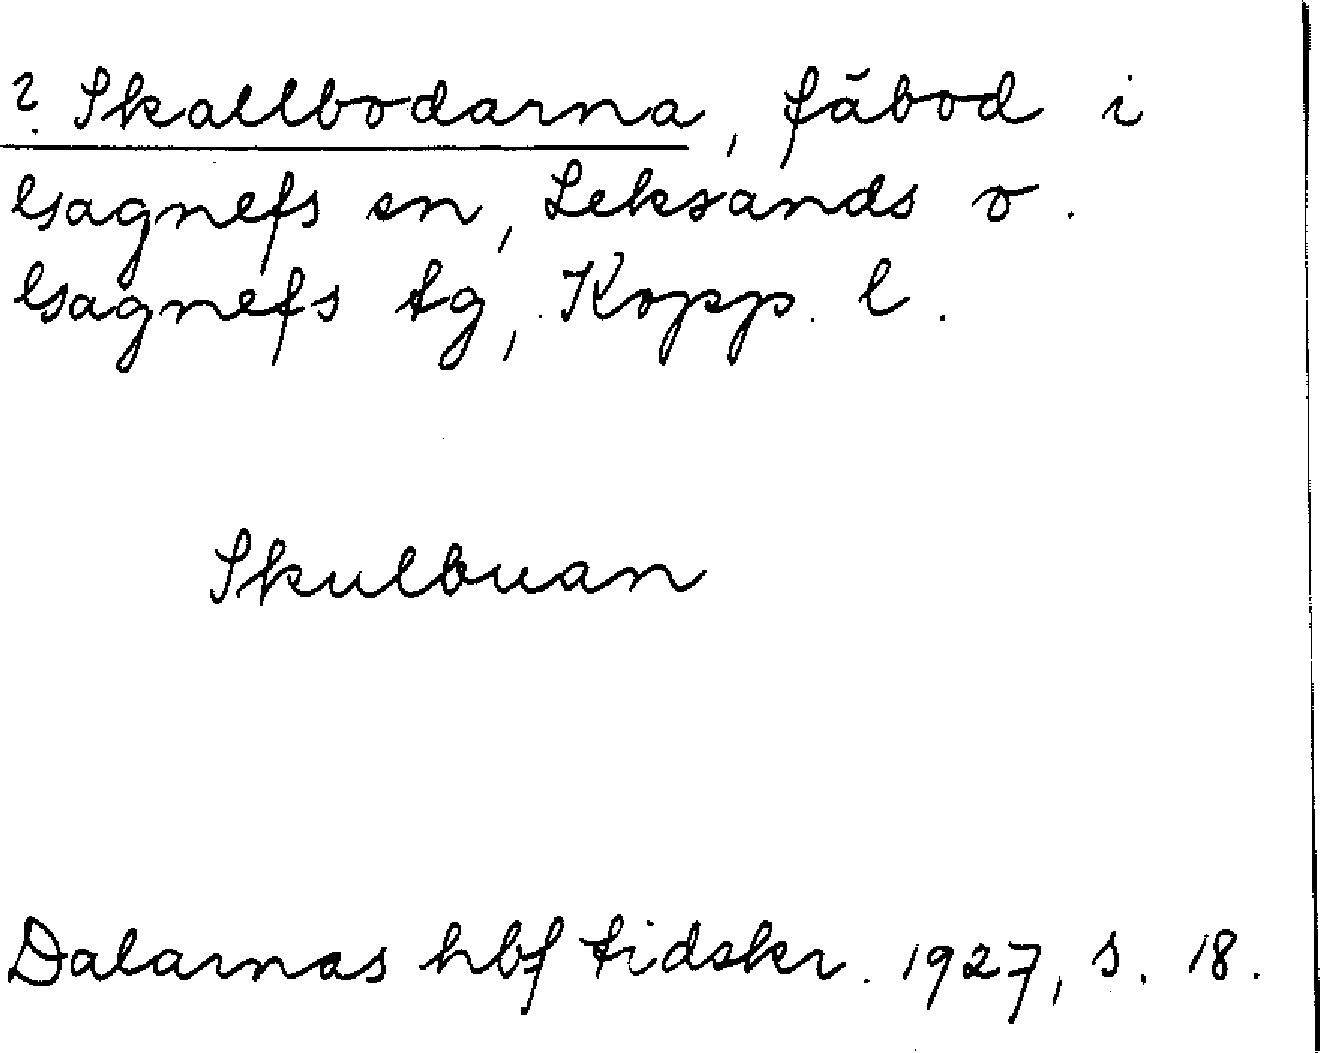 ? Skallbodarna, fäbod i
Gagnefs sn, Leksands o.
Gagnefs tg, Kopp. l.
Skulbuan
Dalarnas hbf tidskr. 1927, s. 18.